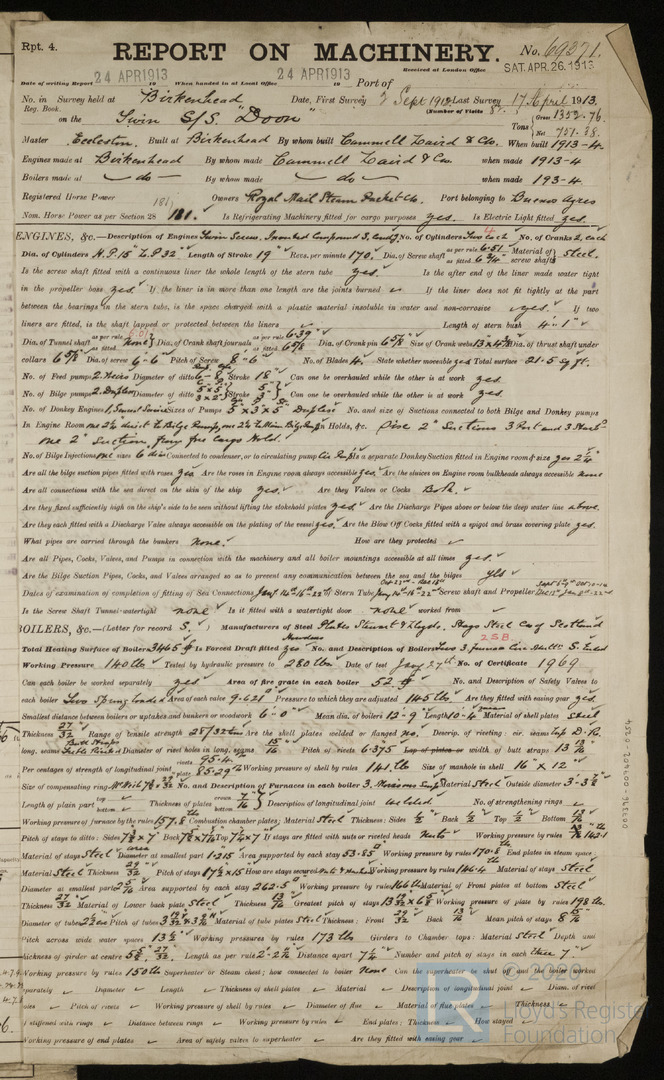 Rpt. 4.
REPORT ON MACHINERY.
No. 69271.
Date of writing Report 24 APR 1913 19 When handed in at Local Office 24 APR 1913 19 Port of
Received at London Office SAT. APR. 26. 1913
No. in Survey held at Birkenhead Date, First Survey 2 Sept 1912 Last Survey 17 April 1913.
Reg. Book. (Number of Visits
on the Twin S/S. "Doon" Tons Gross 1352.76 Net 751.38.
Master Eccleston. Built at Birkenhead By whom built Cammell Laird & Co. When built 1913-4.
Engines made at Birkenhead By whom made Cammell Laird & Co. when made 1913-4
Boilers made at - do - By whom made - do - when made 193-4
Registered Horse Power Owners Royal Mail Steam Packet Co. Port belonging to Buenos Ayres
Nom. Horse Power as per Section 28 181. 181. Is Refrigerating Machinery fitted for cargo purposes yes. Is Electric Light fitted yes.
ENGINES, &c.— Description of Engines Twin Screw. Inverted Compound S. Cond'g No. of Cylinders Two each 4 No. of Cranks 2, each
Dia. of Cylinders H.P. 15" L.P. 32" Length of Stroke 19" Revs. per minute 170. Dia. of Screw shaft as per rule 6.51 as fitted 6 3/4" Material of screw shaft Steel.
Is the screw shaft fitted with a continuous liner the whole length of the stern tube yes. Is the after end of the liner made water tight
in the propeller boss yes. If the liner is in more than one length are the joints burned If the liner does not fit tightly at the part
between the bearings in the stern tube, is the space charged with a plastic material insoluble in water and non-corrosive yes. If two
liners are fitted, is the shaft lapped or protected between the liners Length of stern bush 4'-1"
Dia. of Tunnel shaft as per rule as fitted none Dia. of Crank shaft journals as per rule 6.39 as fitted 6 5/8 Dia. of Crank pin 6 5/8 Size of Crank webs 13 x 4 1/8 Dia. of thrust shaft under
collars 6 5/8 Dia. of screw 6-6 Pitch of Screw 8'-6" No. of Blades 4. State whether moveable yes Total surface 21.5 sq ft.
No. of Feed pumps 2. Diameter of ditto 6-8 Stroke 18" Can one be overhauled while the other is at work yes.
No. of Bilge pumps 2. Duplex Diameter of ditto Stroke Can one be overhauled while the other is at work yes.
No. of Donkey Engines Sizes of Pumps 5 x 3 x 5 Duplex No. and size of Suctions connected to both Bilge and Donkey pumps
In Engine Room one 2 1/2 direct to Bilge Pump, one 2 1/2 to Main Bilge Pump In Holds, &c. Five 2" Suctions 3 Port and 3 Starb'd
one 2" Suction from fore Cargo Hold.
No. of Bilge Injections one sizes 6 dia Connected to condenser, or to circulating pump Cir. Pump Is a separate Donkey Suction fitted in Engine room & size yes 2 1/2
Are all the bilge suction pipes fitted with roses yes Are the roses in Engine room always accessible yes. Are the sluices on Engine room bulkheads always accessible none
Are all connections with the sea direct on the skin of the ship yes. Are they Valves or Cocks Both.
Are they fixed sufficiently high on the ship's side to be seen without lifting the stokehold plates yes. Are the Discharge Pipes above or below the deep water line above.
Are they each fitted with a Discharge Valve always accessible on the plating of the vessel yes. Are the Blow Off Cocks fitted with a spigot and brass covering plate yes.
What pipes are carried through the bunkers none. How are they protected
Are all Pipes, Cocks, Valves, and Pumps in connection with the machinery and all boiler mountings accessible at all times yes.
Are the Bilge Suction Pipes, Cocks, and Valves arranged so as to prevent any communication between the sea and the bilges yes
Dates of examination of completion of fitting of Sea Connections Jany. 14-16-22 of Stern Tube Jany 14-16-22 Screw shaft and Propeller
Is the Screw Shaft Tunnel watertight none Is it fitted with a watertight door none worked from
BOILERS, &c.— (Letter for record S.) Manufacturers of Steel Plates Stewart & Lloyds. Stays Steel Co of Scotland
Total Heating Surface of Boilers 3465 Is Forced Draft fitted yes No. and Description of Boilers Two 3 furnace Cir. Mult. S. Ended 2 S.B.
Working Pressure 140 lbs Tested by hydraulic pressure to 280 lbs Date of test Jany 27th. No. of Certificate 1969
Can each boiler be worked separately yes Area of fire grate in each boiler 52 No. and Description of Safety Valves to
each boiler Two Spring loaded Area of each valve 9.621 Pressure to which they are adjusted 145 lbs. Are they fitted with easing gear yes
Smallest distance between boilers or uptakes and bunkers or woodwork 6'-0" Mean dia. of boilers 12'-9" Length 10-4 Material of shell plates Steel
Thickness 27/32 Range of tensile strength 28/32 tons Are the shell plates welded or flanged no. Descrip. of riveting: cir. seams Lap D.R.
long. seams Diameter of rivet holes in long. seams 15/16 Pitch of rivets 6.375 Lap of plates or width of butt straps 13 7/16
Per centages of strength of longitudinal joint rivets 95.4 plate 85.29 Working pressure of shell by rules 141 lb Size of manhole in shell 16" x 12"
Size of compensating ring No. and Description of Furnaces in each boiler 3. Morisons Susp Material Steel Outside diameter 3'-3 1/2"
Length of plain part top bottom Thickness of plates crown 7/16 bottom Description of longitudinal joint welded No. of strengthening rings
Working pressure of furnace by the rules 157.8 Combustion chamber plates: Material Steel Thickness: Sides 1/2 Back 1/2 Top 1/2 Bottom
Pitch of stays to ditto: Sides 7 1/2 x 7 Back 7 1/2 x 7 1/2 Top 7 1/2 x 7 If stays are fitted with nuts or riveted heads Nuts Working pressure by rules 142.1
Material of stays Steel Diameter at smallest part 1.215 Area supported by each stay 53.85 Working pressure by rules 170.8 End plates in steam space:
Material Steel Thickness 29/32 Pitch of stays 17 1/2 x 15 How are stays secured Nuts & Washers Working pressure by rules 146.4 Material of stays Steel
Diameter at smallest part Area supported by each stay 262.5 Working pressure by rules 166 lb Material of Front plates at bottom Steel
Thickness 27/32 Material of Lower back plate Steel Thickness 13/16 Greatest pitch of stays Working pressure of plate by rules 198 lb.
Diameter of tubes Pitch of tubes Material of tube plates Steel Thickness: Front 29/32 Back 13/16 Mean pitch of stays
Pitch across wide water spaces 13 1/2 Working pressures by rules 173 lbs Girders to Chamber tops: Material Steel Depth and
thickness of girder at centre Length as per rule 2'-2 7/8 Distance apart 7 1/2 Number and pitch of stays in each three 7"
Working pressure by rules 150 lb Superheater or Steam chest; how connected to boiler None Can the superheater be shut off and the boiler worked
separately Diameter Length Thickness of shell plates Material Description of longitudinal joint Diam. of rivet
holes Pitch of rivets Working pressure of shell by rules Diameter of flue Material of flue plates Thickness
If stiffened with rings Distance between rings Working pressure by rules End plates: Thickness How stayed
Working pressure of end plates Area of safety valves to superheater Are they fitted with easing gear
© 2020
Lloyd's Register
Foundation